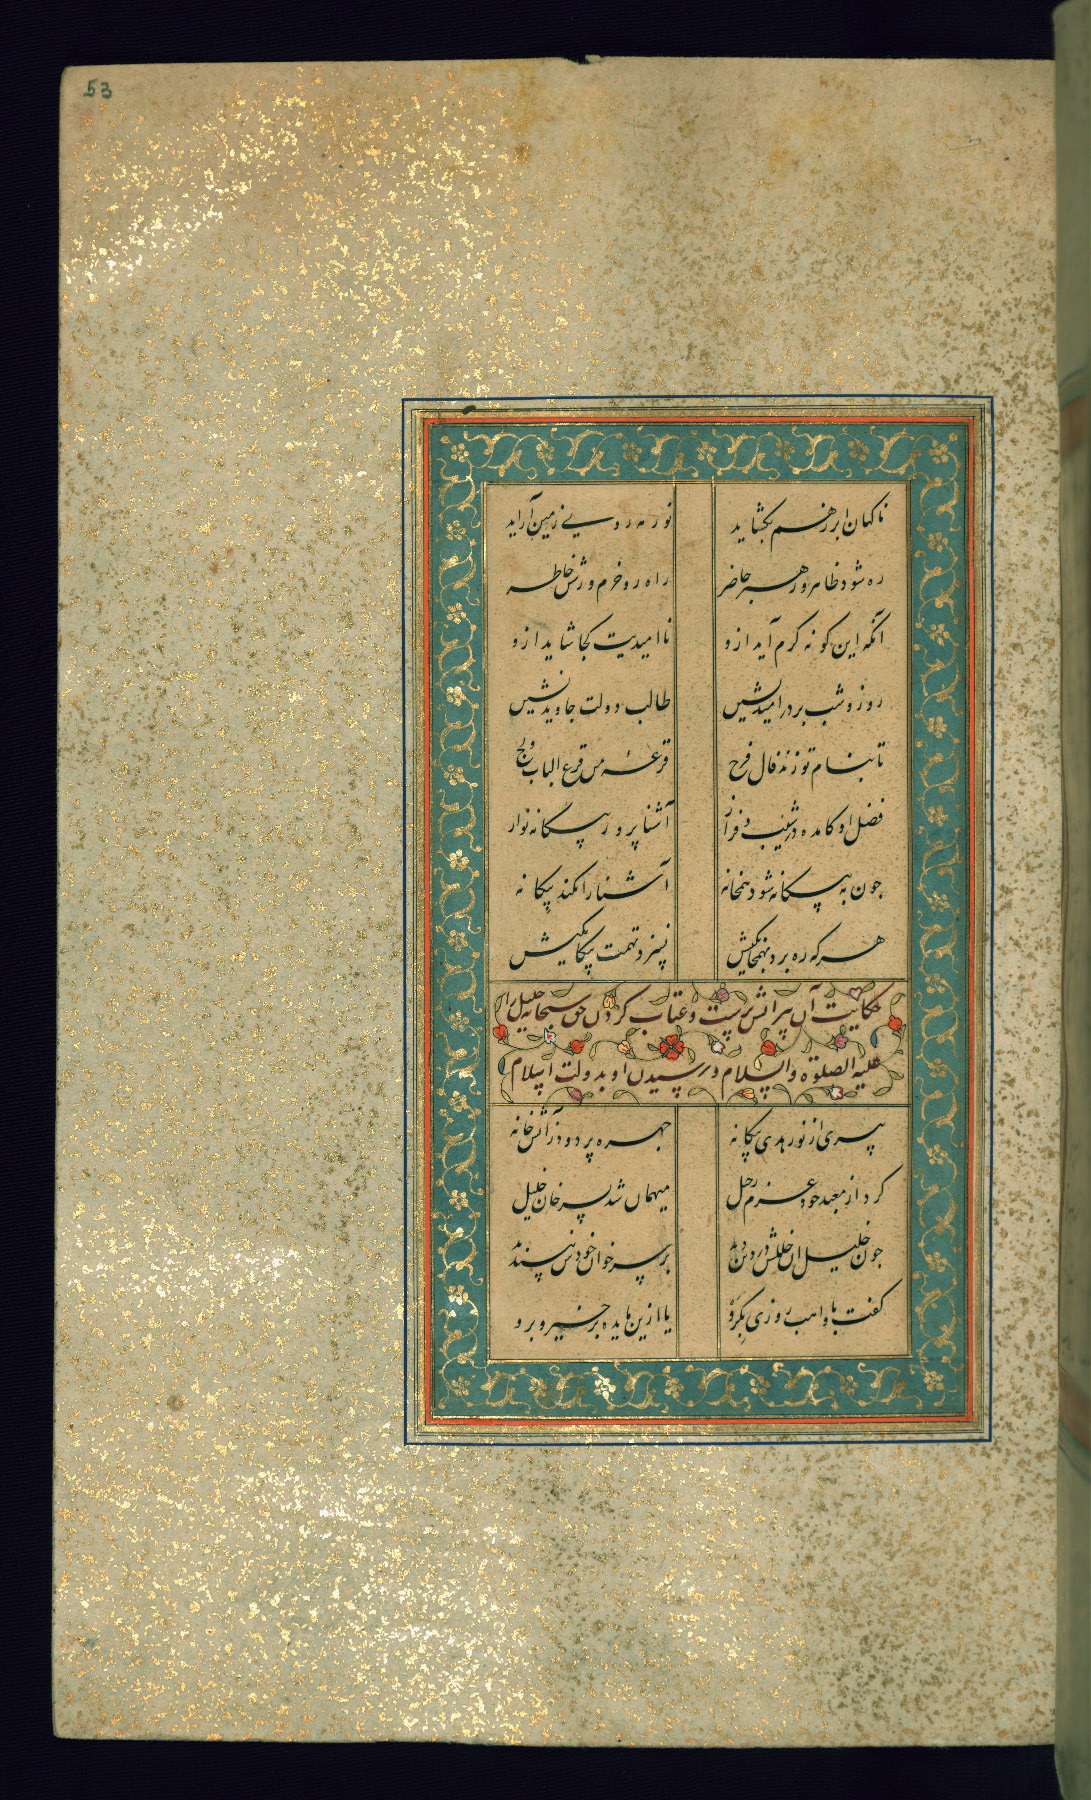 53
ناکهان ابر ز هم بکشاید نور مه روی زمین آراید
ره شود ظاهر و رهبر حاضر راه رو خرم و خاطر
انکه این کونه کرم آید ازو ناامیدیت کجا شاید ازو
روز و شب بر در امید نشین طالب دولت جاوید نشین
تا بنام تو زند فال فرح قرعهٔ من قرع الباب ولج
فضل او کامده در شیب و فراز آشنا پرور بیکانه نواز
جون به بیکانه شود همخانه آشنا را نکند بیکانه
هر که ره برد بهمخانکیش نسزد تهمت بیکانکیش
حکایت آن پیر آتش پرست و عتاب کردن حق سبحانه خلیل را
علیه الصلوة والسلام و رسیدن او بدولت اسلام
پیری از نور هدی بیکانه جهره پر دود ز آتش خانه
کرد از معبد خود عزم رحیل میهمان شد بسر خوان خلیل
جون خلیل آن خللش در دین دید بر سر خوان خودش نپسندید
کفت با واهب روزی بکرو یا ازین مایده برخیز و برو